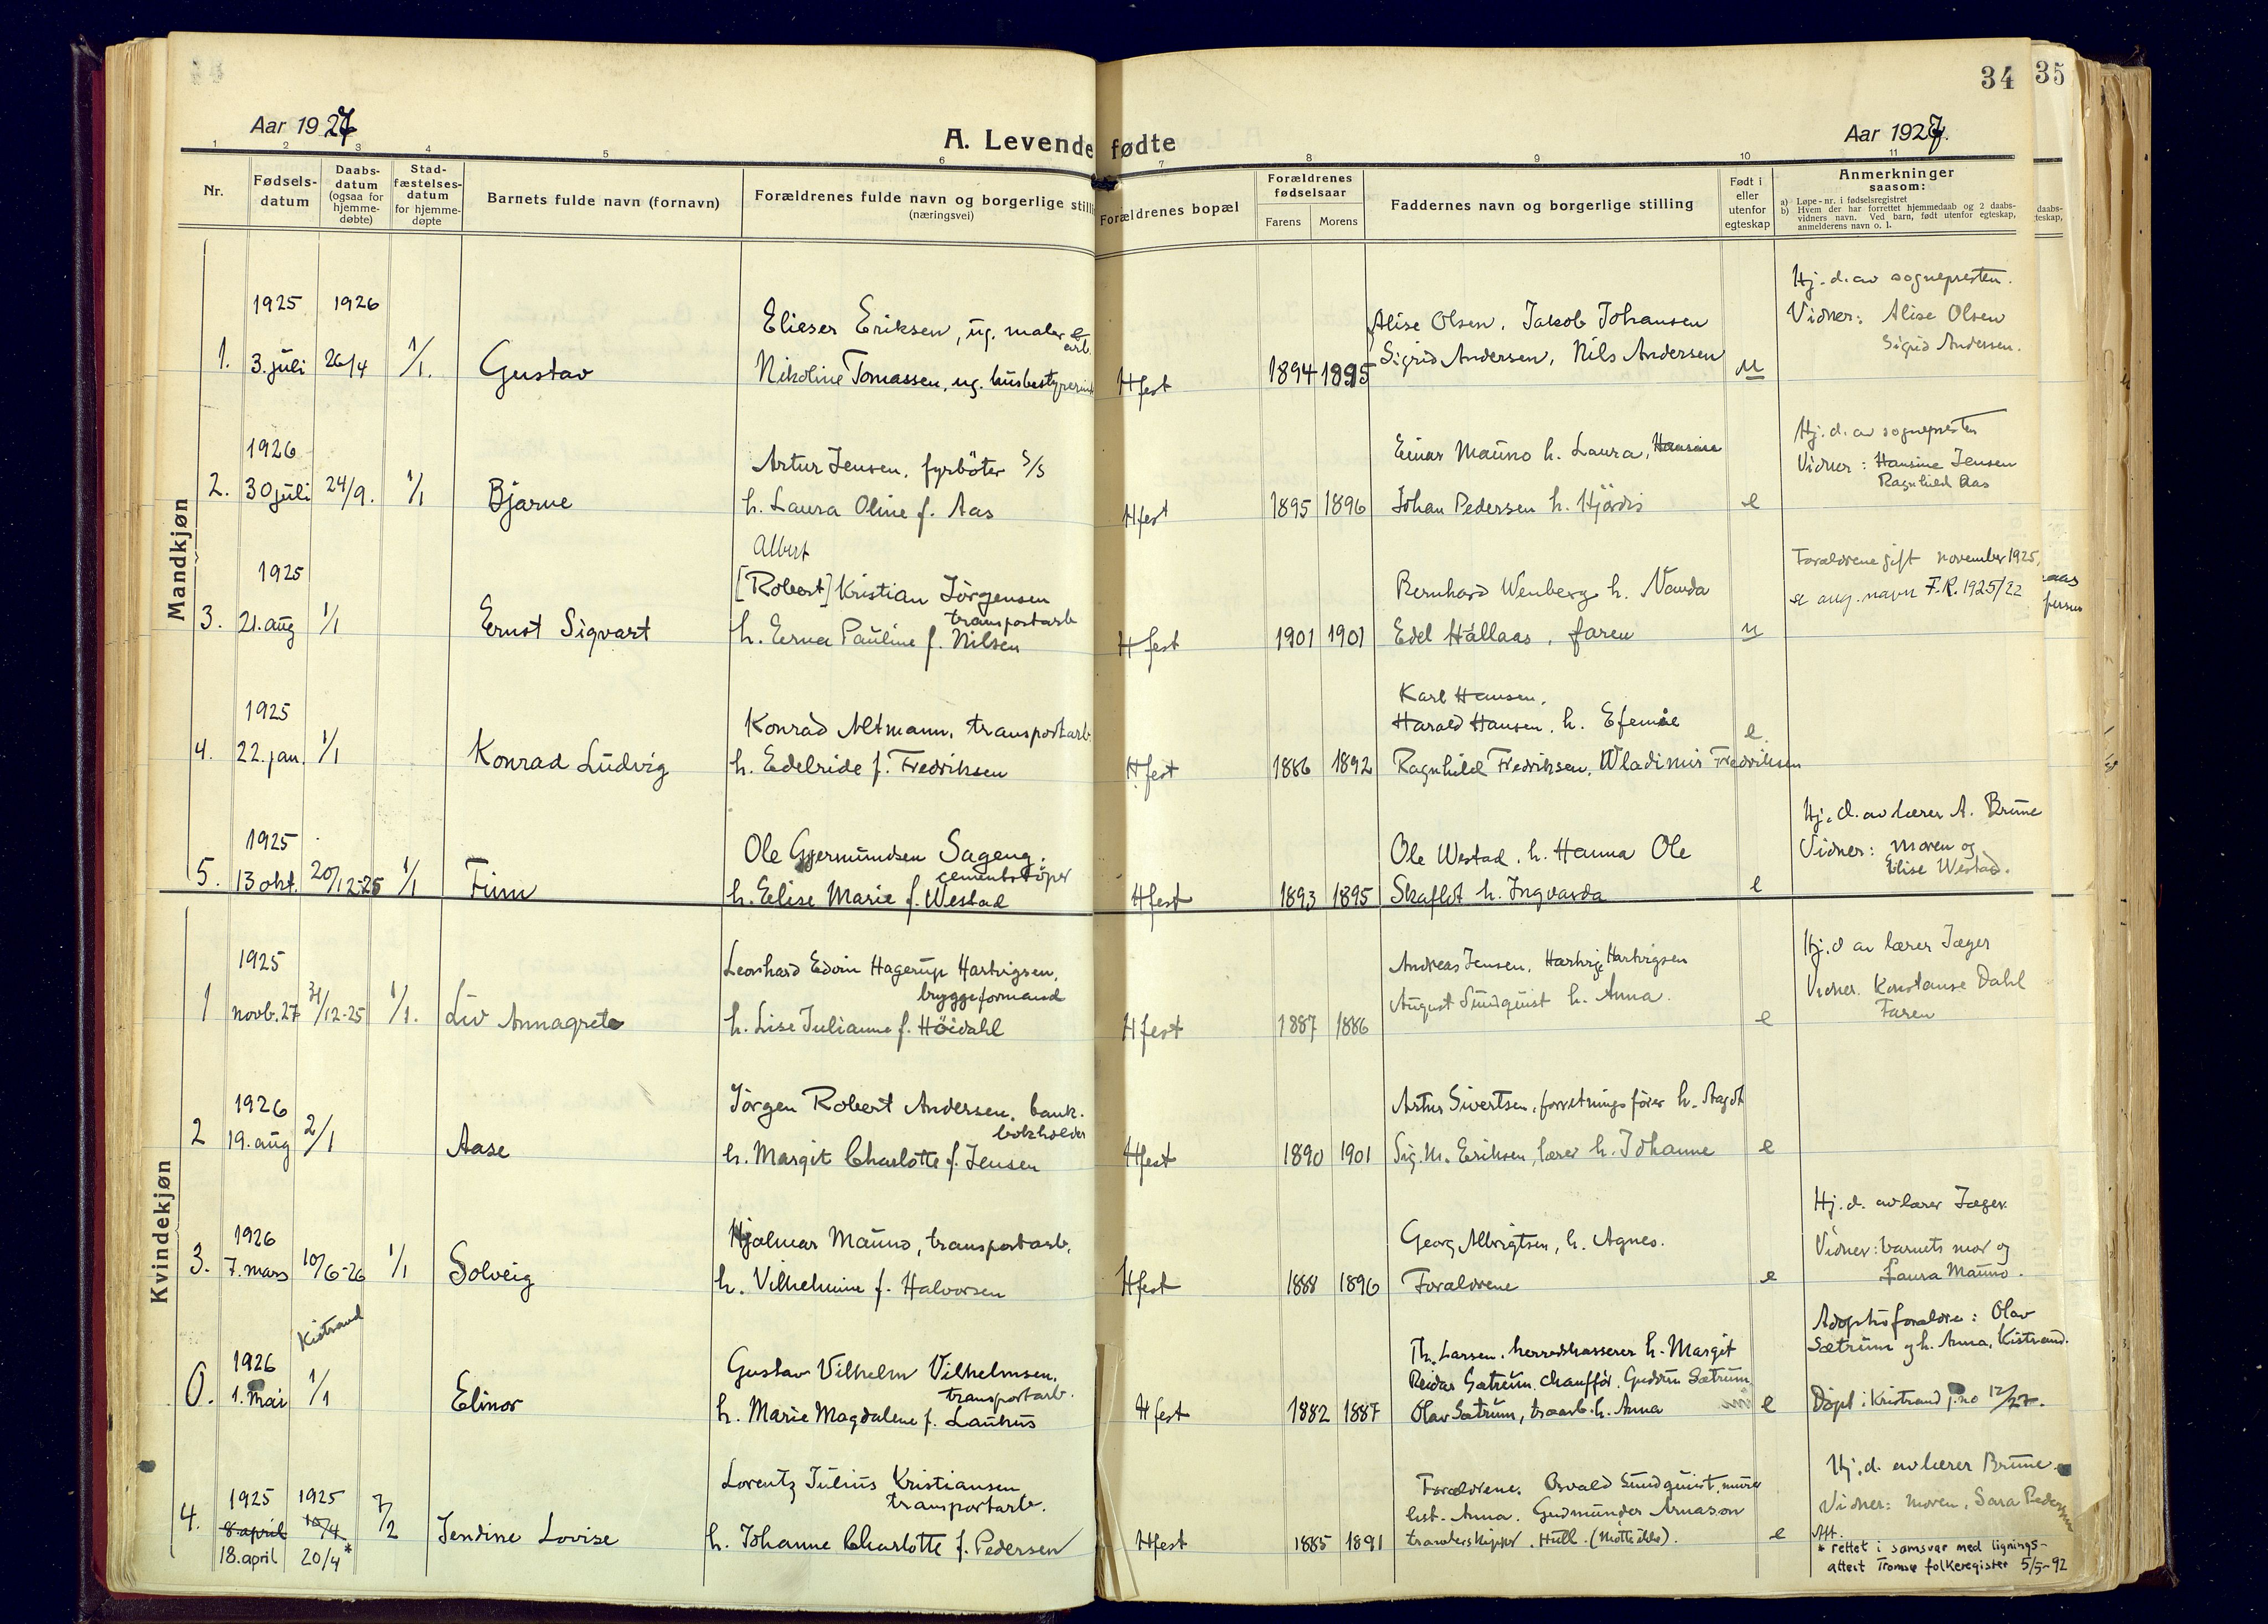 34
35
Aar 1927
A. Levende fødte
Aar 1927.
1 2 3 4 5 6 7 8 9 10 11
Nr.
Fødsels-
datum
Daabs-
datum
(ogsaa for
hjemme-
døbte)
Stad-
fæstelses-
datum
for hjemme-
døpte
Barnets fulde navn (fornavn)
Forældrenes fulde navn og borgerlige stilli
(næringsvei)
Forældrenes bopæl
Forældrenes
fødselsaar
Farens Morens
Faddernes navn og borgerlige stilling
Født i
eller
utenfor
egteskap
Anmerkninger
saasom:
a) Løpe-nr. i fødselsregistret
b) Hvem der har forrettet hjemmedaab og 2 daabs-
vidners navn. Ved barn, født utenfor egteskap,
anmelderens navn o. l.
daabs-
teskap,
Mandkjøn
1.
1925
3. juli
1926
26/4
1/1.
Gustav
Elieser Eriksen, ug. maler
arb.
Nikoline Tomassen, ug. husbestyrerinde
Hfest
1894 1895
Alise Olsen, Jakob Johansen
Sigrid Andersen, Nils Andersen
u
Hj. d. av sognepresten.
Vidner: Alise Olsen
Sigrid Andersen.
2.
1926
30 juli
24/9.
1/1
Bjarne
Artur Jensen, fyrböter S/S
h. Laura Oline f. Aas
Hfest
1895 1896
Einar Mauno h. Laura, Hansine
Johan Pedersen h. Hjördis
e
Hj. d. av sognepresten
Vidner: Hansine Jensen
Ragnhild Aas
3.
1925
21. aug
1/1
Ernst Sigvart
Albert
[Robert] Kristian Jörgensen
transportarb
h. Erna Pauline f. Nilsen
Hfest
1901 1901
Bernhard Wenberg h. Vanda
Edel Hallaas, faren
u
Forældrene gift november 1925,
se ang. navn F.R. 1925/22
4.
1925
22. jan.
1/1
Konrad Ludvig
Konrad Altmann, transportarb.
h. Edelride f. Fredriksen
Hfest
1886 1892
Karl Hansen,
Harald Hansen, h. Efemie
Ragnhild Fredriksen, Wladimir Fredriksen
e.
5.
1925
13 okt.
20/12-25
1/1
Finn
Ole Gjermundsen Sageng,
cementstöper
h. Elise Marie f. Westad
Hfest
1893 1895
Ole Westad, h. Hanna Ole
Skaflot h. Ingvarda
e
Hj. d. av lærer A. Brune
Vidner: moren og
Elise Westad.
Kvindekjøn
1
1925
novb. 27
31/12-25
1/1.
Liv Annagrete
Leonhard Edvin Hagerup Hartvigsen,
bryggeformand
h. Lise Julianne f. Höidahl
Hfest
1887 1886
Andreas Jensen, Hartvig Hartvigsen
August Sundquist h. Anna.
e
Hj. d av lærer Jæger
Vidner. Konstanse Dahl
Faren
2
1926
19. aug
2/1
Aase
Jörgen Robert Andersen, bank-
bokholder
h. Margit Charlotte f. Jensen
Hfest
1890 1901
Artur Sivertsen, forretningsförer h. Magdt
Sig. M. Eriksen, lærer h. Johanne
e
3.
1926
7. mars
10/6-26
1/1
Solveig
Hjalmar Mauno, transportarb.
h. Vilhelmine f. Halvorsen
Hfest
1888 1896
Georg Albrigtsen, h. Agnes.
Forældrene
e
Hj. d. av lærer Jæger.
Vidner: barnets mor og
Laura Mauno.
0.
1926
1. mai
Kistrand
1/1
Elinor
Gustav Vilhelm Vilhelmsen,
transportarb.
h. Marie Magdalene f. Lauhus
Hfest
1882 1887
Th. Larsen, herredskasserer h. Margit
Reidar Sætrum, chaufför, Gudrun Sætrum
Olav Sætrum, h. Anna
e
Adoptivforældre: Olav
Sætrum og h. Anna, Kistrand.
Döpt i Kistrand j.no 12/27.
4.
1925
8. april
18. april
1925
10/4
20/4*
7/2
Jendine Lovise
Lorentz Julius Kristiansen
transportarb.
h. Johanne Charlotte f. Pedersen
Hfest
1885 1891
Forældrene. Osvald Sundquist, murer
h. Anna. Gudmunder Arnason
Hull. (mötte ikke).
e
Hj. d. av lærer Brune.
Vidner: moren, Sara Pedersen
Att.
* rettet i samsvar med lignings-
attest Tromsø folkeregister 5/5-92